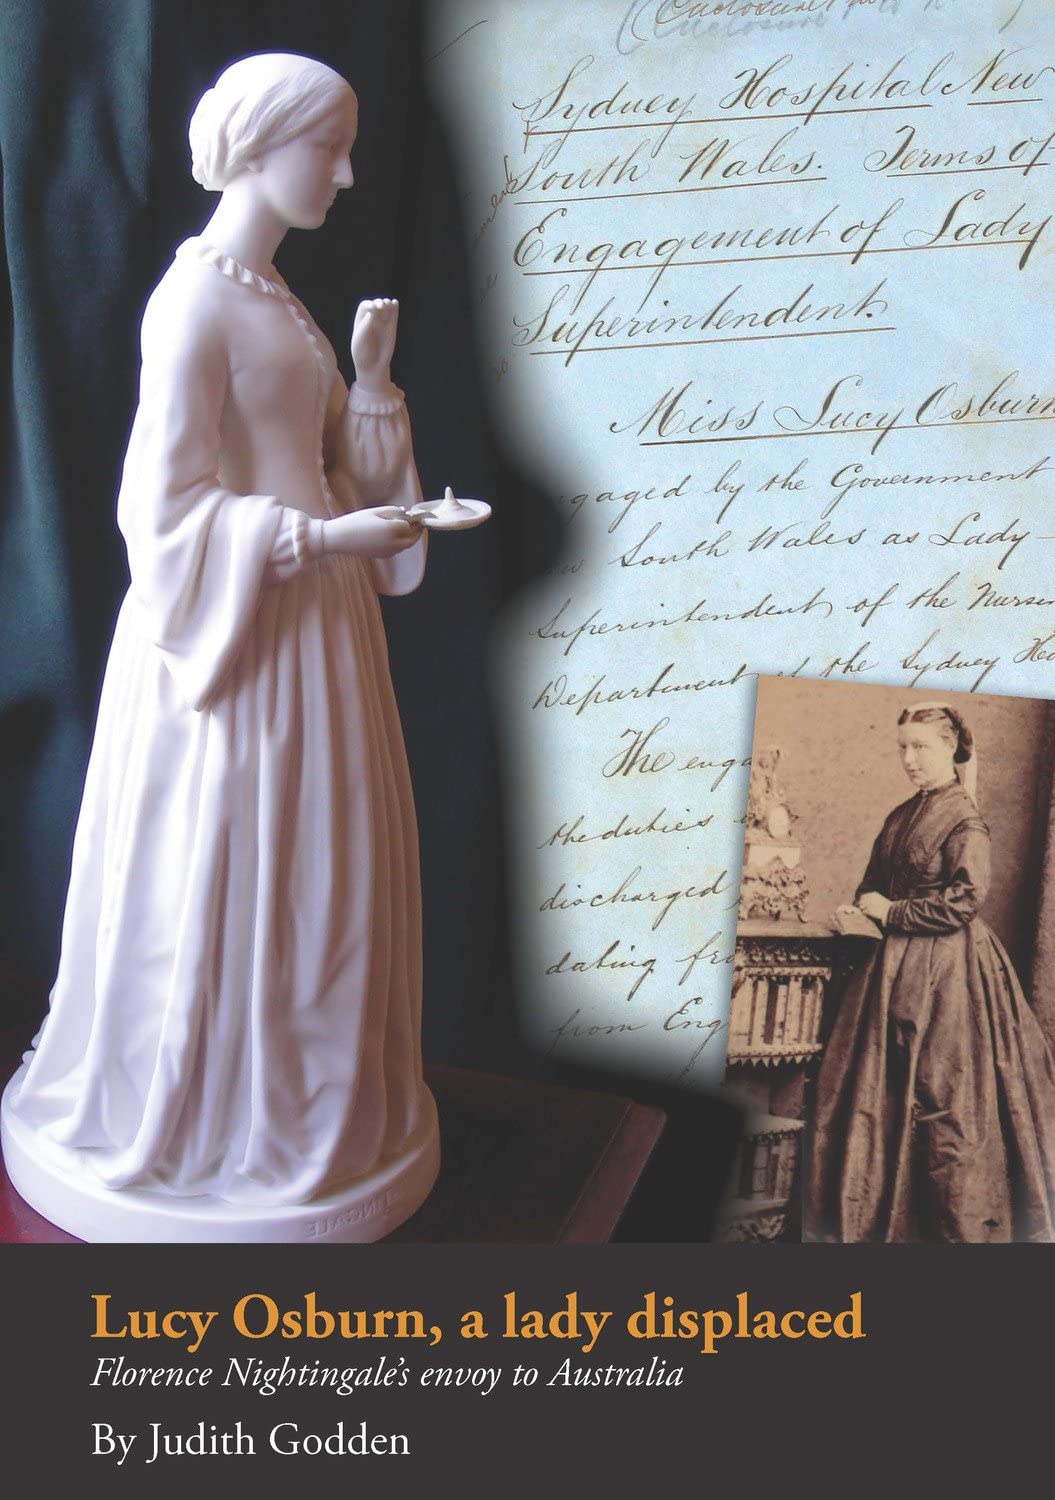 Sydney Hospital New
South Wales. Terms of
Engagement of Lady
Superintendent.
Miss Lucy Osburn
gaged by the Government
South Wales as Lady-
Superintendent of the Nurse
Department of the Sydney Ho
The enga
the duties
discharged
dating fro
from Eng
Lucy Osburn, a lady displaced
Florence Nightingale's envoy to Australia
By Judith Godden